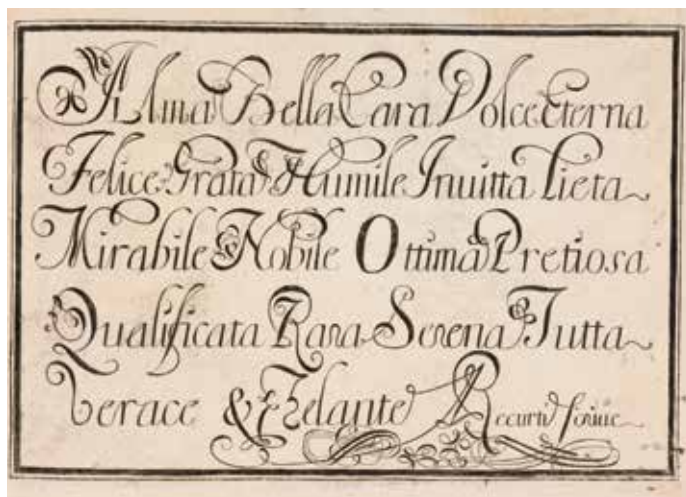 Alma Bella Cara Dolce Eterna
Felice Grata Humile Inuitta Lieta
Mirabile Nobile Ottima Pretiosa
Qualificata Rara Serena Tutta
Verace & Zelante